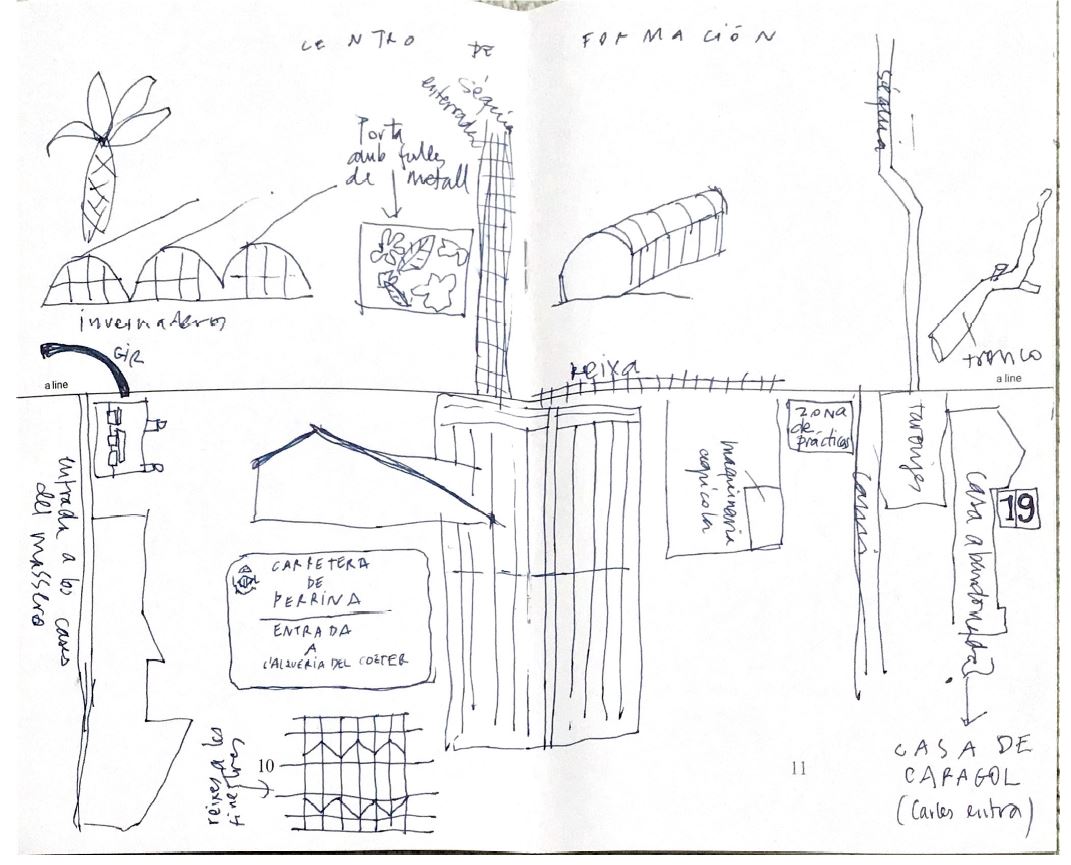 CENTRO DE FORMACIÓN
séquia
enterrada
séquia
Porta
amb fulles
de metall
invernaderos
GIR
a line
reixa
tronco
a line
entrada a les cases
del massero
CARRETERA
DE
PERRINA
ENTRADA
A
L'ALQUERIA DEL COETER
maquinaria
agrícola
ZONA
de
prácticas
camí
taronjes
casa abandonada
19
reixes a les
finestres
10
11
CASA DE
CARAGOL
(Carles entra)